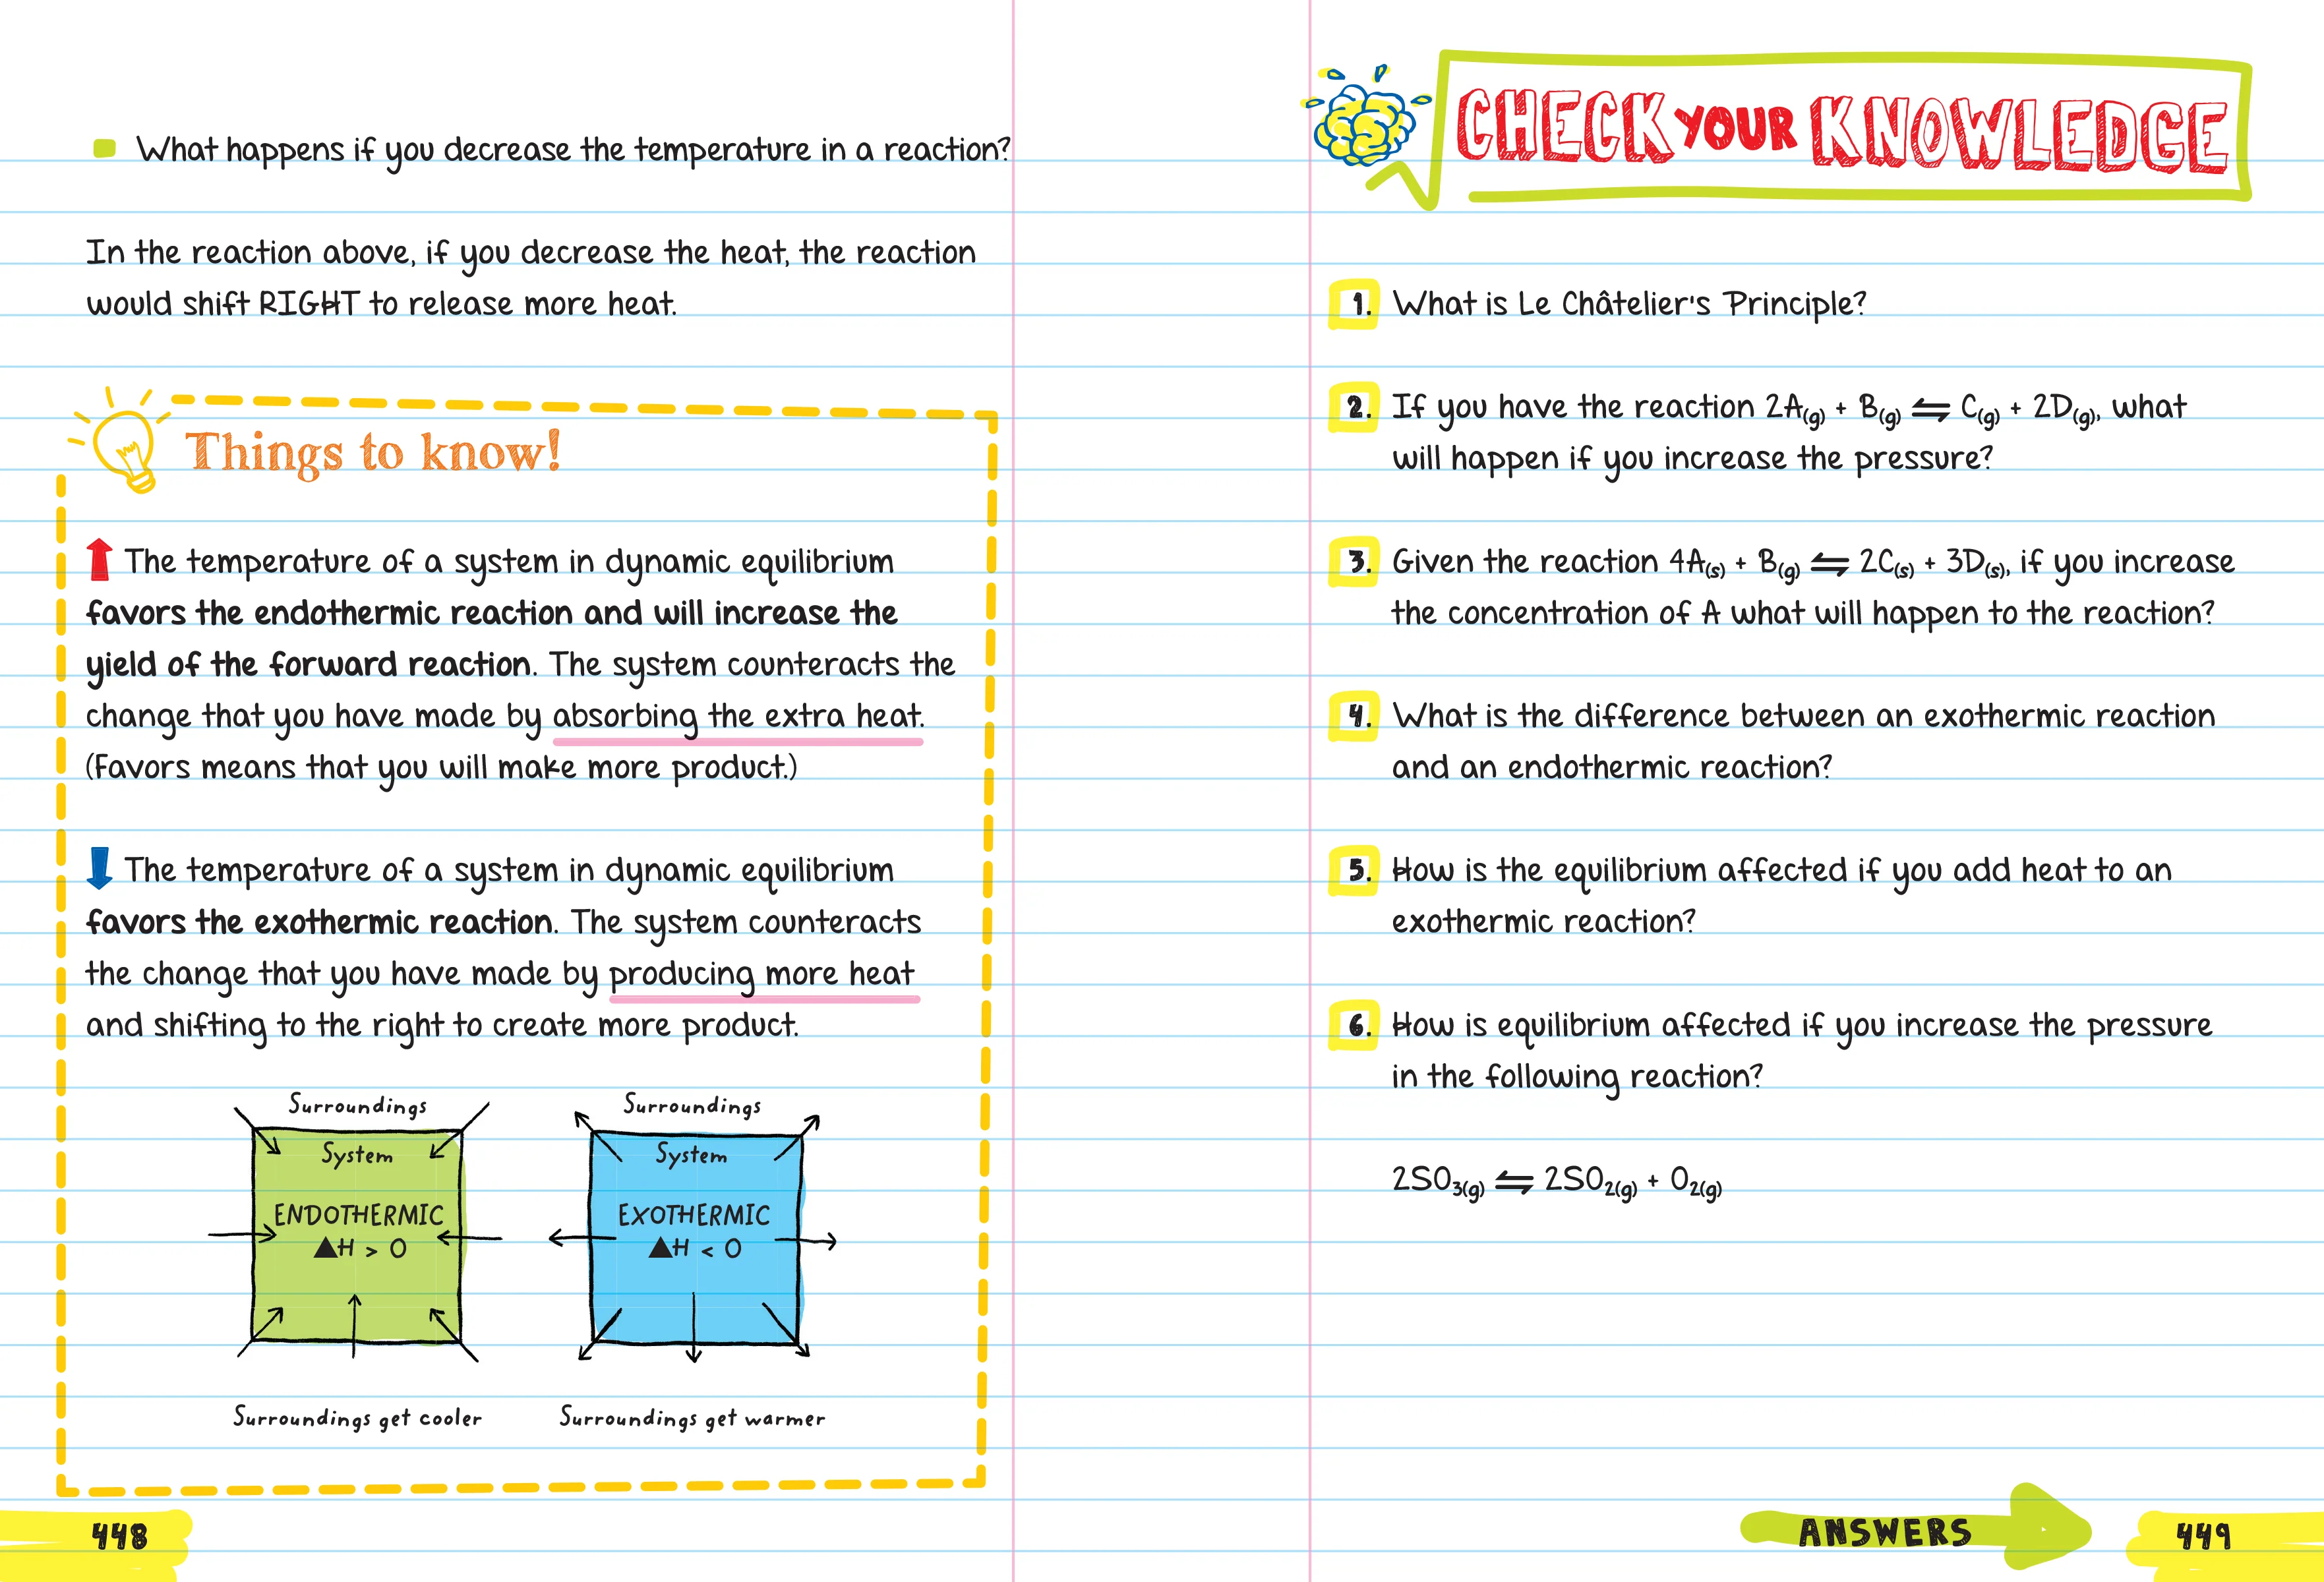 What happens if you decrease the temperature in a reaction?
In the reaction above, if you decrease the heat, the reaction
would shift RIGHT to release more heat.
Things to know!
The temperature of a system in dynamic equilibrium
favors the endothermic reaction and will increase the
yield of the forward reaction. The system counteracts the
change that you have made by absorbing the extra heat.
(Favors means that you will make more product.)
The temperature of a system in dynamic equilibrium
favors the exothermic reaction. The system counteracts
the change that you have made by producing more heat
and shifting to the right to create more product.
Surroundings
System
ENDOTHERMIC
▲H > 0
Surroundings get cooler
Surroundings
System
EXOTHERMIC
▲H < 0
Surroundings get warmer
448
CHECK YOUR KNOWLEDGE
1. What is Le Châtelier's Principle?
2. If you have the reaction 2A(g) + B(g) ⇌ C(g) + 2D(g), what
will happen if you increase the pressure?
3. Given the reaction 4A(s) + B(g) ⇌ 2C(s) + 3D(s), if you increase
the concentration of A what will happen to the reaction?
4. What is the difference between an exothermic reaction
and an endothermic reaction?
5. How is the equilibrium affected if you add heat to an
exothermic reaction?
6. How is equilibrium affected if you increase the pressure
in the following reaction?
2SO₃(g) ⇌ 2SO₂(g) + O₂(g)
ANSWERS
449